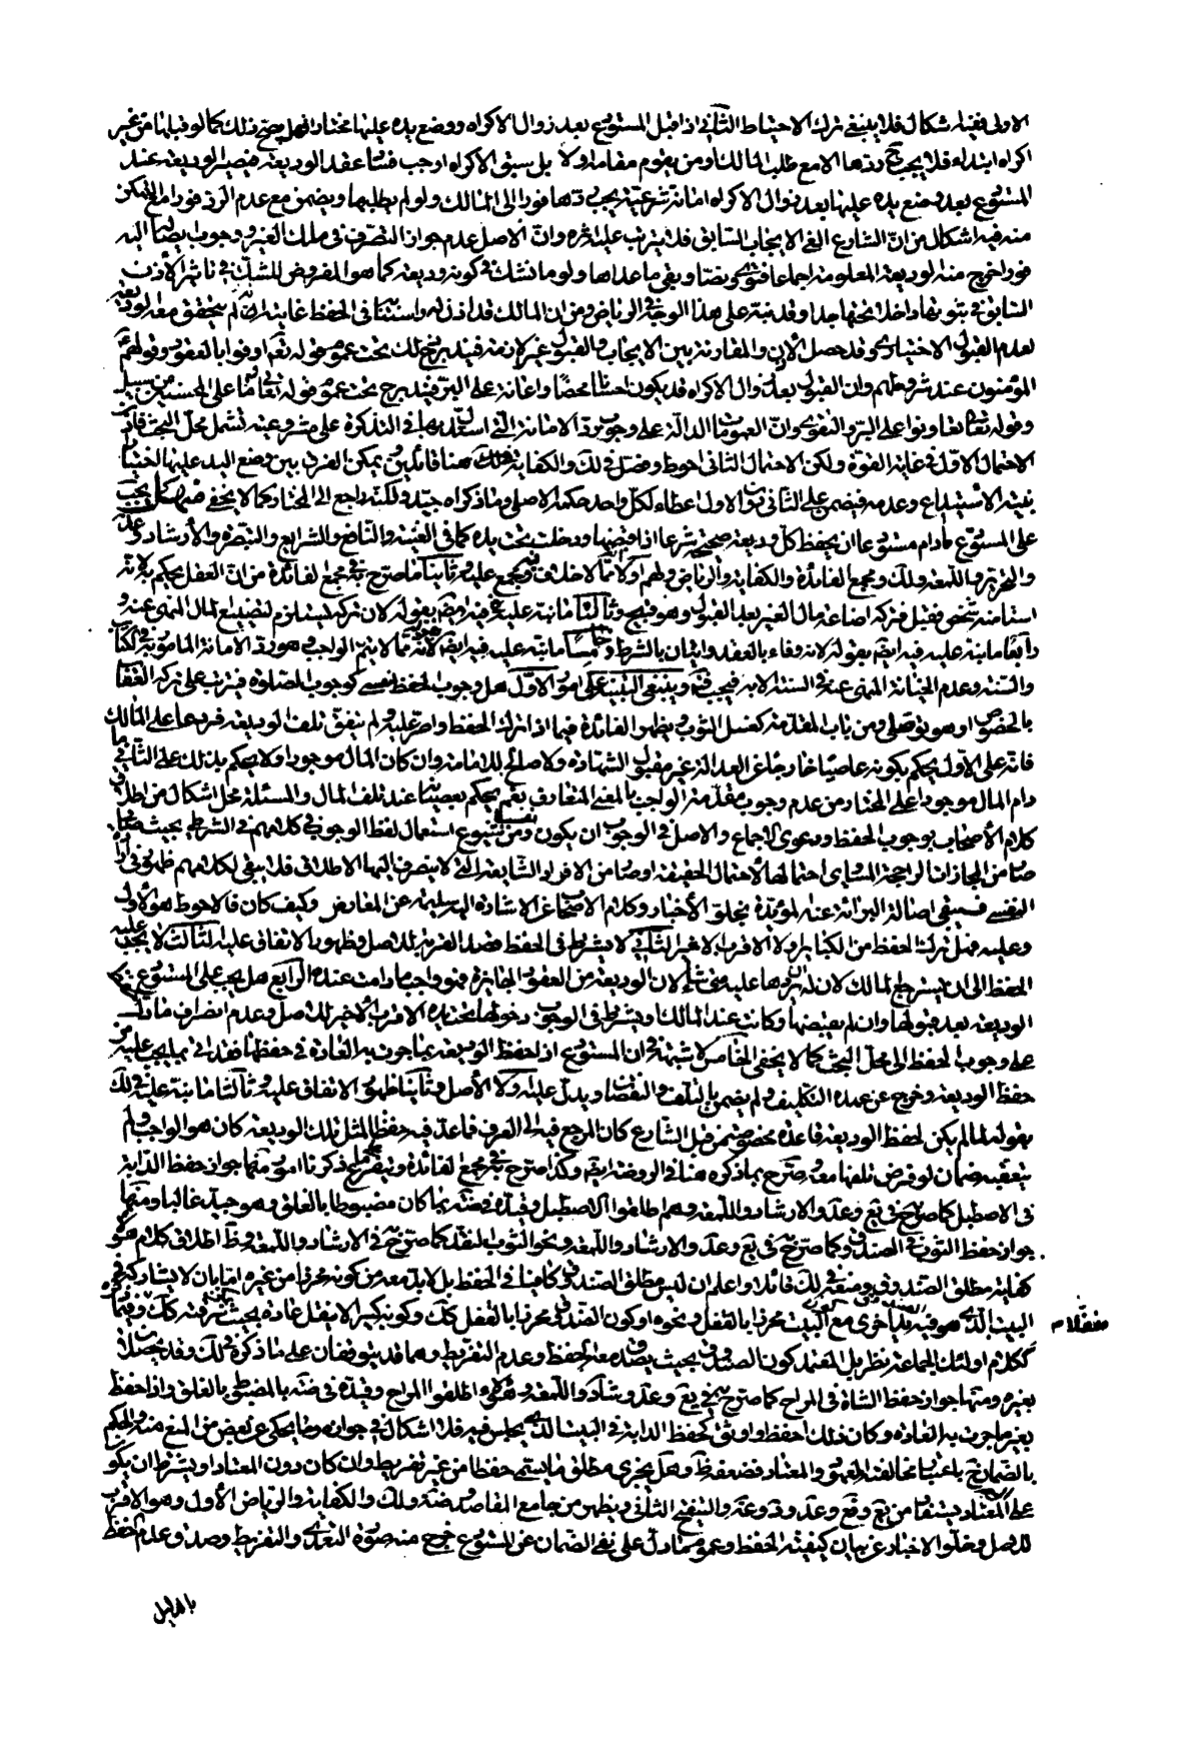 الاولى ففيها اشكال فلا ينبغي ترك الاحتياط الثاني اذا قبل المستودع بعد زوال الاكراه ووضع يده عليها مختارا فهل يصح ذلك كما لو قبلها من غير
اكراه ابتداء فلا يجب ح ردها الا مع طلب المالك او من يقوم مقامه او لا بل سبق الاكراه اوجب فساد عقد الوديعة فيصير الوديعة عند
المستودع بعد وضع يده عليها بعد زوال الاكراه امانة شرعية يجب ردها فورا الى المالك ولو لم يطلبها ويضمن مع عدم الرد فورا مع التمكن
منه فيه اشكال من ان الشارع الغى الايجاب السابق فلا يترتب عليه اثره وان الاصل عدم جواز التصرف في ملك الغير ووجوب ايصاله اليه
فورا خرج منه الوديعة المعلومة اجماعا فتوى ونصا وبقى ما عداها ولو ما نشك في كونه وديعة كما هو المفروض للشك في تاثير الاذن
السابق في بثبوتها داخلا تحتها جدا وقد نبه على هذا الوجه في الرياض ومن ان المالك قد اذن له واستنابه في الحفظ غايته انه لم يتحقق معه الوديعة
لعدم القبول الاختياري وقد حصل الان والمقارنة بين الايجاب والقبول غير لازمة فيندرج ذلك تحت عموم قوله تعم اوفوا بالعقود وقولهم
المؤمنون عند شروطهم وان القبول بعد زوال الاكراه قد يكون احسانا محضا واعانة على البر فيندرج تحت عموم قوله تعالى ما على المحسنين من سبيل
وقوله تعالى تعاونوا على البر والتقوى وان العمومات الدالة على وجوب رد الامانة التي استدل بها في التذكرة على مشروعيته تشمل محل البحث فاذن
الاحتمال الاول في غاية القوة ولكن الاحتمال الثاني احوط وفصل في لك والكفاية هنا قائلين يمكن الفرق بين وضع اليد عليها اختيارا
بنية الاستيداع وعدمه فيضمن على الثاني دون الاول اعطاء لكل واحد حكمه الاصلي وما ذكراه جيد ولكنه راجع الى المختار كما لا يخفى يجب
على المستودع ما دام مستودعا ان يحفظ كل وديعة صحيحة شرعا اذا قبضها ودخلت تحت يده كما في الغنية والنافع والشرايع والتبصرة والارشاد وعد
والتحرير واللمعة ولك ومجمع الفائدة والكفاية والرياض ولهم اولا انه مما لا خلاف فيه ومجمع عليه وثانيا ما صرح به في مجمع الفائدة من ان العقل يحكم بانه
استامنه شخص فقبل فتركه اضاعة مال الغير بعد القبول وهو قبيح وثالثا ما نبه عليه فيه ايضا بقوله لان تركه يستلزم لتضييع المال المنهى عنه و
رابعا ما نبه عليه فيه ايضا بقوله لانه وفاء بالعقد واتيان بالشرط وخامسا ما نبه عليه فيه ايضا لانه مما لا يتم الواجب وهو رد الامانة المامور به في الكتاب
والسنة وعدم الخيانة المنهى عنه في السنة الا به فيجب وينبغي التنبيه على امور الاول هل وجوب الحفظ نفسى كوجوب الصلوة فيترتب على تركه العقاب
بالخصوص او هو توصلي ومن باب المقدمة كغسل الثوب ويظهر الفائدة فيما اذا ترك الحفظ واصر عليه ولم يتفق تلف الوديعة فردها على المالك
فانه على الاول يحكم بكونه عاصيا خارجا عن العدالة غير مقبول الشهادة ولا صالح للامامة وان كان المال موجودا ولا يحكم بذلك على الثاني ما
دام المال موجودا على المختار من عدم وجوب مقدمة الواجب بالمعنى المتعارف نعم يحكم بعصيانه عند تلف المال والمسئلة محل اشكال من اطلاق
كلام الاصحاب بوجوب الحفظ ودعوى الاجماع والاصل في الوجوب ان يكون نفسيا ومن شيوع استعمال لفظ الوجوب في كلامهم في الشرطي بحيث صار
من المجازات الراجحة المساوى احتمالها لاحتمال الحقيقة او صار من الافراد الشايعة التي لا ينصرف اليها الاطلاق فلا يبقى لكلامهم ظهور في ارادة
النفسى فيبقى اصالة البرائة عنه المؤيدة بخلو الاخبار وكلام الاصحاب عن الاشارة اليه سليمة عن المعارض وكيف كان فالاحوط هو الاول
وعليه فهل ترك الحفظ من الكبائر او لا الاقرب الاخير الثاني لا يشترط في الحفظ قصد القربة للاصل وظهور الاتفاق عليه الثالث لا يجب عليه
الحفظ الى ان يسترجع المالك لان له ان يردها عليه متى شاء لان الوديعة من العقود الجائزة فهو واجب ما دامت عنده الرابع هل يجب على المستودع حفظ
الوديعة بعد قبولها وان لم يقبضها وكانت عند المالك او يشترط في الوجوب دخولها تحت يده الاقرب الاخير للاصل وعدم انصراف ما دل
على وجوب الحفظ الى محل البحث كما لا يخفى الخامس لا شبهة في ان المستودع اذا حفظ الوديعة بما جرت به العادة في حفظها فقد اتى بما يجب عليه من
حفظ الوديعة وخرج عن عهدة التكليف ولم يضمن بالتلف والنقصان ويدل عليه اولا الاصل وثانيا ظهور الاتفاق عليه وثالثا ما نبه عليه في لك
بقوله لما لم يكن لحفظ الوديعة قاعدة مخصوصة من قبل الشارع كان المرجع فيه الى العرف فما عد فيه حفظا لمثل تلك الوديعة كان هو الواجب ولم
يتعقبه ضمان لو فرض تلفها معه وصرح بما ذكره هنا في الروضة ايضا وكذا صرح به في مجمع الفائدة ويتفرع على ما ذكرنا امور منها جواز حفظ الدابة
في الاصطبل كما صرح به في يع وعد والارشاد واللمعة وهم اطلقوا الاصطبل وقيده في ضه بما كان مضبوطا بالغلق وهو جيد غالبا ومنها
جواز حفظ الثوب في الصندوق كما صرح به في يع وعد والارشاد واللمعة ونحو الثوب النقد كما صرح به في الارشاد واللمعة وظ اطلاق كلام هؤلاء
كفاية مطلق الصندوق ومنعه في لك قائلا واعلم ان ليس مطلق الصندوق كافيا في الحفظ بل لا بد معه من كونه محرزا من غيره اما بان لا يشاركه في
البيت الذي هو فيه يد اخرى مع كون البيت محرزا بالقفل ونحوه او كون الصندوق محرزا بالقفل كك وكونه كبيرا لا ينقل عادة بحيث يمكن سرقته كك وقيدا
كلام اولئك الجماعة نظر بل المعتمد كون الصندوق بحيث يصدق معه الحفظ وعدم التفريط وهما قد يتوقفان على ما ذكره في لك وقد يحصلان
بغيره ومنها جواز حفظ الشاة في المراح كما صرح به في يع وعد وشاد واللمعة وهؤلاء اطلقوا المراح وقيده في ضه بالمضبوط بالغلق واذا حفظ
بغير ما جرت به العادة وكان ذلك احفظ واوثق كحفظ الدابة في البيت الذي يجلس فيه فلا اشكال في جوازه وما يحكى عن بعض من المنع منه والحكم
بالضمان ح باعتبار مخالفته المعهود والمعتاد فضعفه ظ وهل يجزي مطلق ما يسمى حفظا من غير تفريط وان كان دون المعتاد او يشترط ان يكون
على المعتاد يستفاد من يع وفع وعد وذ وعة والتنقيح الثاني ويظهر من جامع المقاصد وضه ولك والكفاية والرياض الاول وهو الاقرب
للاصل وخلو الاخبار عن بيان كيفية الحفظ وعموم ما دل على نفي الضمان عن المستودع خرج منه صورة التعدي والتفريط وصدق عدم الحفظ
بالدليل